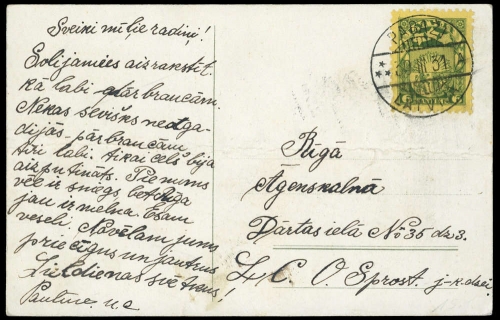 Sveiki mīļie radiņi!
Solijamies aizrakstīt
kā labi pārbraucām.
Nekas sevišks neatga-
dijās. pārbraucām
ļoti labi. tikai ceļš bija
aizputināts. Pie mums
vēl ir sniegs, bet Rīga
jau ir melna. Esam
veseli. Novēlam jums
priecīgus un jautrus
Lieldienas svētkus!
Pauline. u.c
Rīgā
Āgenskalnā
Dārtas ielā No 35 dz 3.
L. C. O. Sprost. j-k dzei